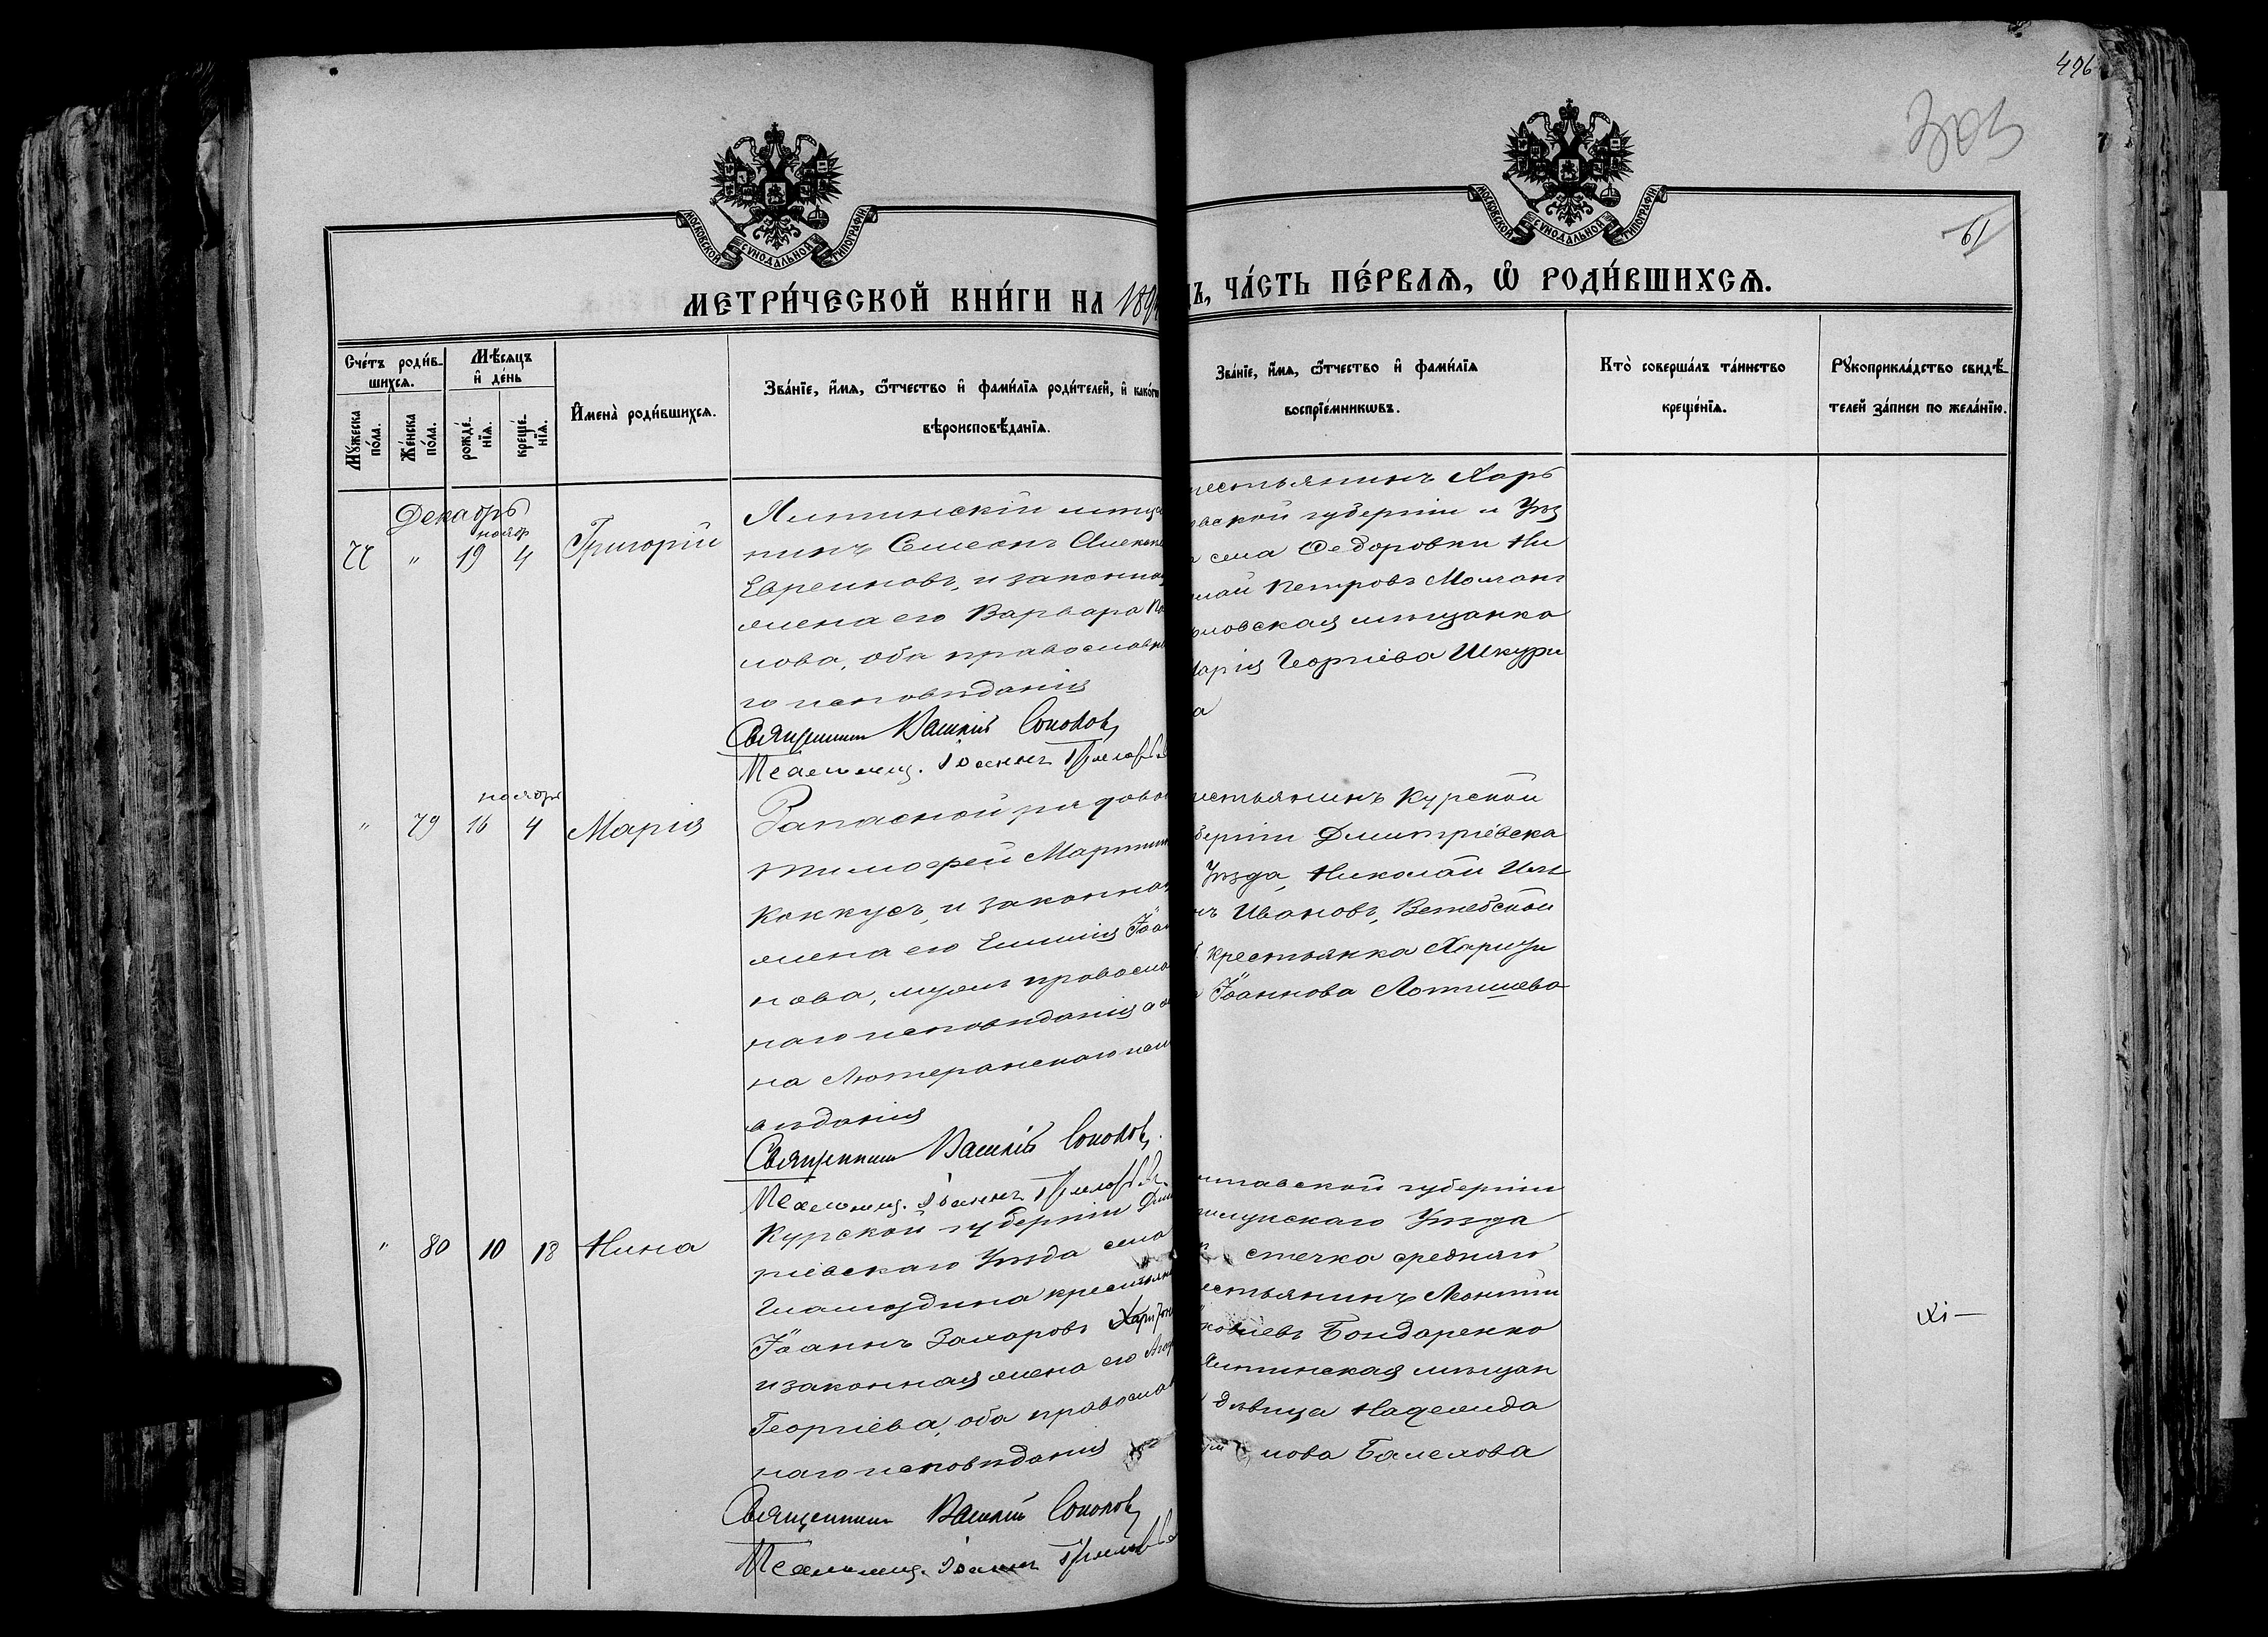 496
303
61
МОСКОВСКОЙ СѴНОДАЛЬНОЙ ТИПОГРАФІИ
МОСКОВСКОЙ СѴНОДАЛЬНОЙ ТИПОГРАФІИ
МЕТРИ́ЧЕСКОЙ КНИ́ГИ НА 189
Ъ, ЧА́СТЬ ПЕ́РВАѦ, Ѡ҆ РОДИ́ВШИХСѦ.
Сче́тъ роди́в-
шихсѧ.
Мꙋ́жеска по́ла.
Же́нска по́ла.
Мѣ́сѧцъ
и҆ де́нь
рожде́-
нїѧ.
креще́-
нїѧ.
И҆мена̀ роди́вшихсѧ.
Зва́нїе, и҆́мѧ, ѻ҆́тчество и҆ фами́лїѧ роди́телей, и҆ како́гѡ
вѣроисповѣ́данїѧ.
Зва́нїе, и҆́мѧ, ѻ҆́тчество и҆ фами́лїѧ
воспрїе́мникѡвъ.
Кто̀ соверша́лъ та́инство
креще́нїѧ.
Рꙋкоприкла́дство свидѣ́-
телей за́писи по жела́нїю.
Декабрь
ноябр
77 " 19 4 Григорій
Ялтинскій мѣща
нинъ Симеонъ Алекс
Евреиновъ, и законная
жена его Варвара Па
лова, оба православн
го исповѣданія
Священникъ Василій Соколовъ
Псаломщ. Іоаннъ
рестьянинъ Харь
вской губерніи и Уѣз
а села Ѳедоровки Ни
лай Петровъ Молчан
ловская мѣщанка
арія Георгіева Шкури
а
ноябрь
" 79 16 4 Марія
Запасной рядовой
Тимофей Мартин
Коккусъ, и законная
жена его Емилія Іоан
нова, мужъ правосла
наго исповѣданія а
на Лютеранскаго испо
вѣданія
Священникъ Василій Соколовъ.
Псаломщ. Іоаннъ
рестьянинъ Курской
берніи Дмитріевска
Уѣзда, Николай
нъ Ивановъ, Витебской
крестьянка
Іоаннова Лотышева
" 80 10 18 Нина
Курской губерніи Дми
ріевскаго Уѣзда села
крестьянинъ
Іоаннъ Захаровъ
и законная жена его
Георгіева, оба правосла
наго исповѣданія
Священникъ Василій Соколовъ
Псаломщ. Іоаннъ
лтавской губерніи
Уѣзда
стечка средняго
естьянинъ Леонтій
ковлевъ Бондаренко
Ялтинская мѣщан
дѣвица Надежда
лова Балехова